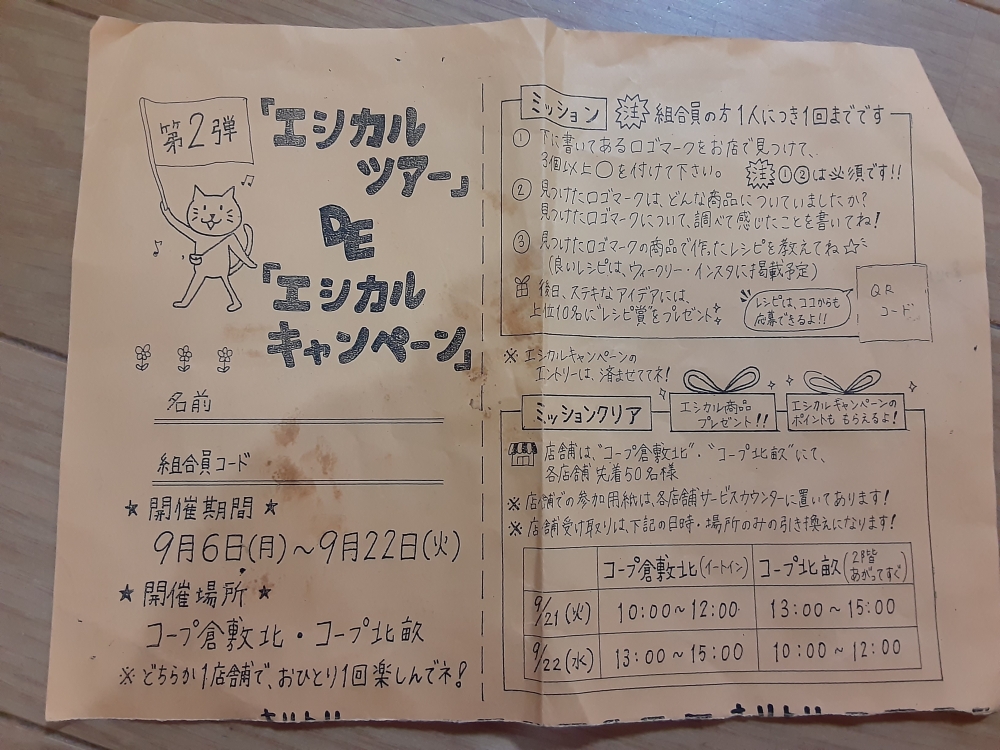 第2弾
「エシカル
ツアー」
DE
「エシカル
キャンペーン」
名前
組合員コード
★開催期間★
9月6日(月)～9月22日(火)
★開催場所★
コープ倉敷北・コープ北畝
※どちらか1店舗で、おひとり1回楽しんでネ!
ミッション
注 組合員の方1人につき1回までです
① 下に書いてあるロゴマークをお店で見つけて、
3個以上○を付けて下さい。 注①②は必須です!!
② 見つけたロゴマークは、どんな商品についていましたか?
見つけたロゴマークについて、調べて感じたことを書いてね!
③ 見つけたロゴマークの商品で作ったレシピを教えてね☆
(良いレシピは、ウィークリー・インスタに掲載予定)
後日、ステキなアイデアには、
上位10名に"レシピ賞"をプレゼント
レシピは、ココからも
応募できるよ!!
QR
コード
※エシカルキャンペーンの
エントリーは、済ませててネ!
ミッションクリア
エシカル商品
プレゼント!!
エシカルキャンペーンの
ポイントも もらえるよ!
店舗は、"コープ倉敷北"・"コープ北畝"にて、
各店舗 先着50名様
※店舗での参加用紙は、各店舗サービスカウンターに置いてあります!
※店舗受け取りは、下記の日時・場所のみの引き換えになります!
コープ倉敷北(イートイン) コープ北畝(2階あがってすぐ)
9/21(火) 10:00～12:00 13:00～15:00
9/22(水) 13:00～15:00 10:00～12:00
キリトリ キリトリ